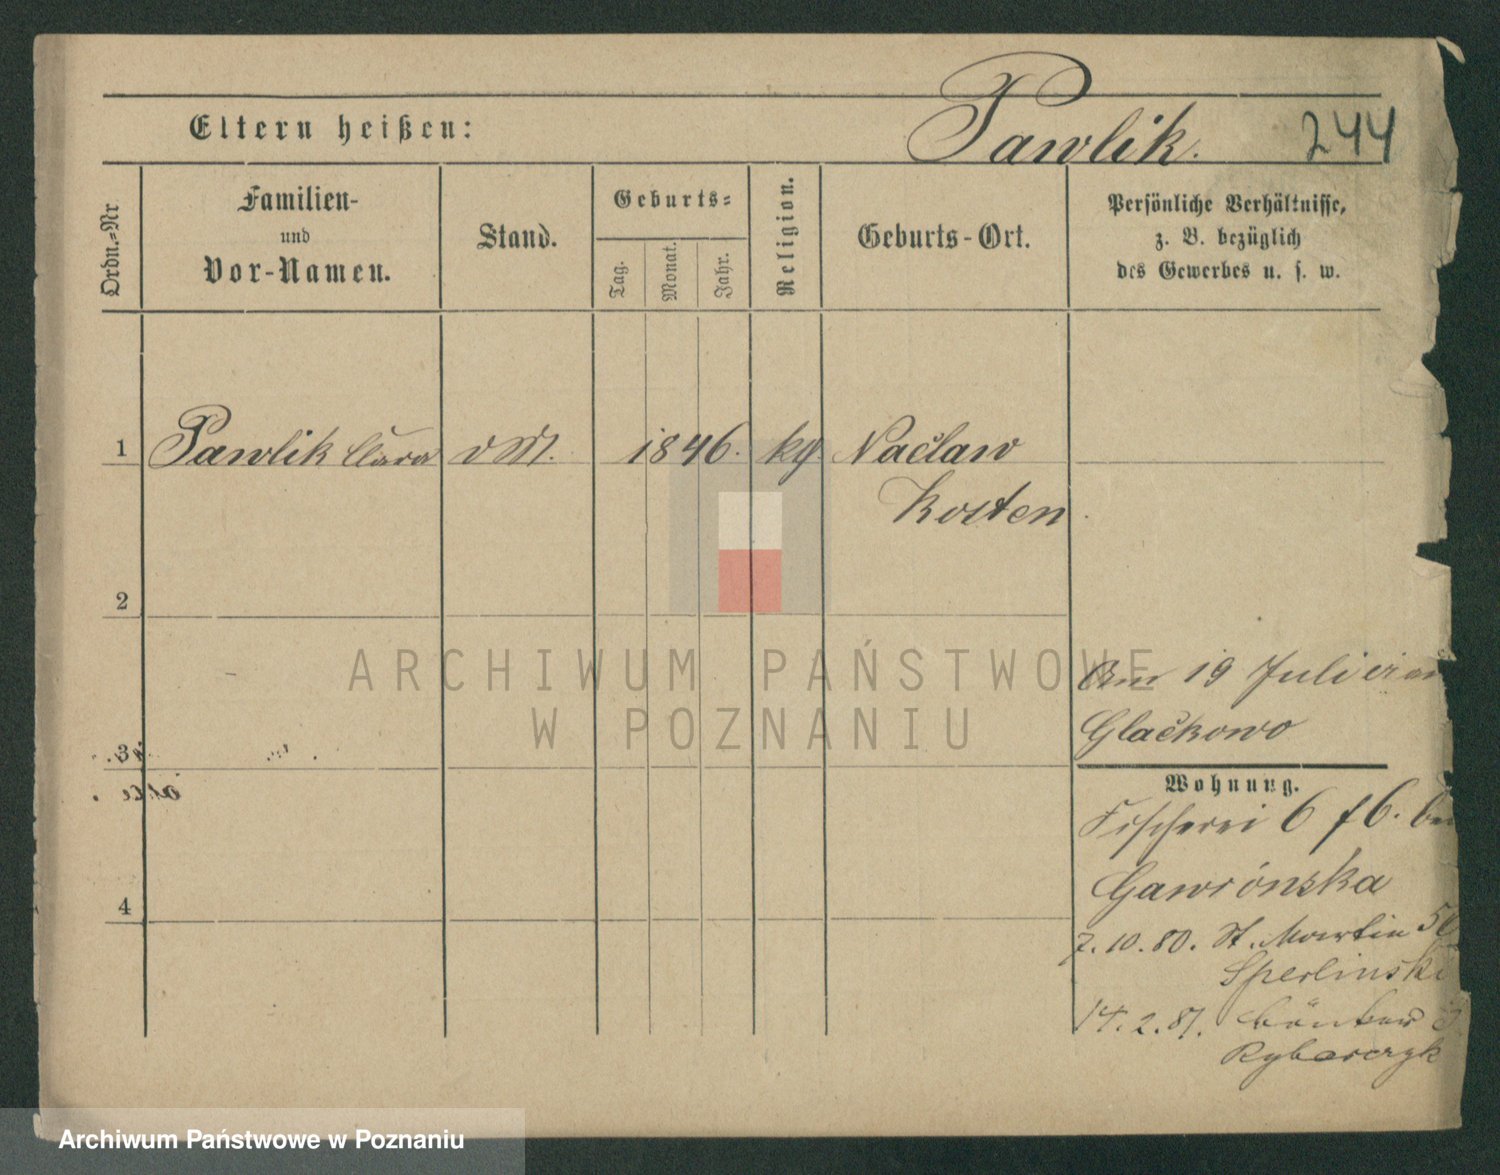 Eltern heißen:
Pawlik. 244
Ordn.=Nr
Familien-
und
Vor-Namen.
Stand.
Geburts=
Tag.
Monat.
Jahr.
Religion.
Geburts-Ort.
Persönliche Verhältnisse,
z. B. bezüglich
des Gewerbes u. s. w.
1 Pawlik Clara d M. 1846. kg Naclaw
Kosten
2
Am 19 Juli
3 Glackowo
Wohnung.
Fischerei 6 f 6. bei
Gawrónska
4
7. 10. 80. St. Martin
Sperlinski
14. 2. 81.
Rybarczyk
ARCHIWUM PAŃSTWOWE
W POZNANIU
Archiwum Państwowe w Poznaniu